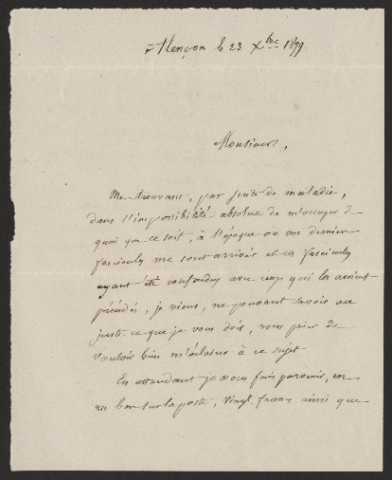 Alençon le 23 Xbre 1899.
Monsieur,
Me trouvant, par suite de maladie,
dans l'impossibilité absolue de m'occuper de
quoi que ce soit, à l'époque où vos derniers
fascicules me sont arrivés et ces fascicules
ayant été confondus avec ceux qui les avaient
précédés, je viens, ne pouvant savoir au
juste ce que je vous dois, vous prier de
vouloir bien m'éclairer à ce sujet.
En attendant je vous fais parvenir, en
un bon sur la poste, vingt francs ainsi que